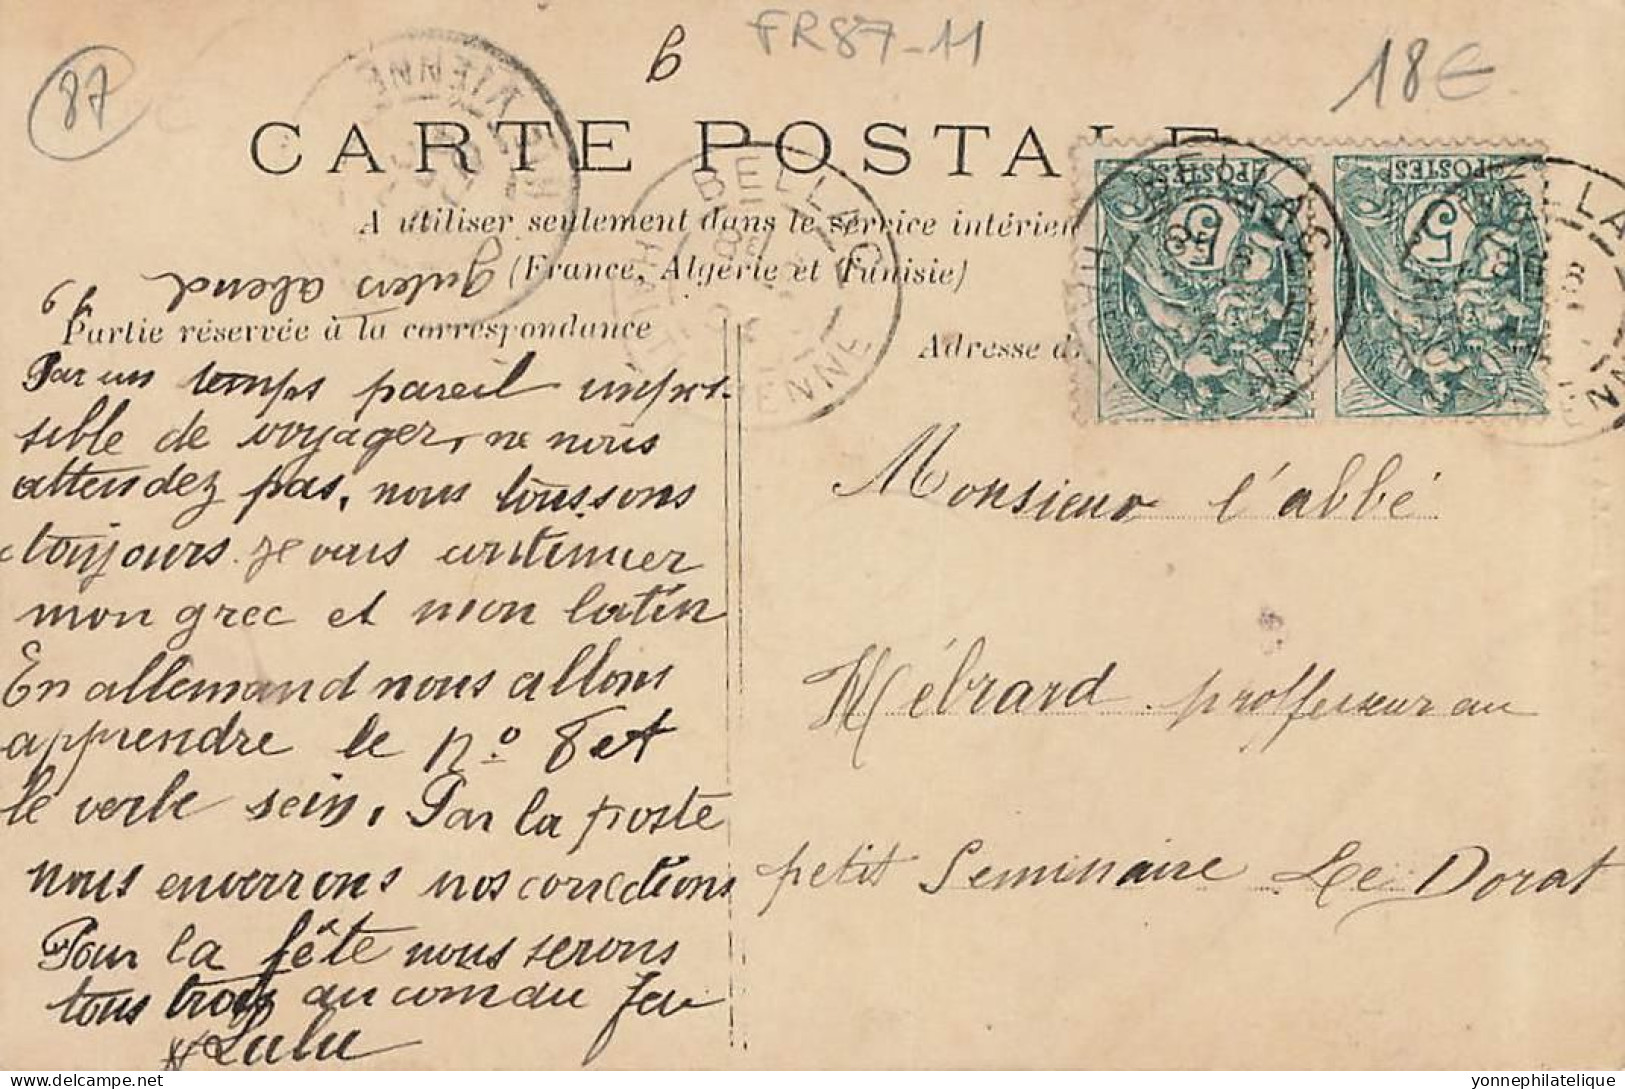 87
FR87-11
18€
CARTE POSTALE
A utiliser seulement dans le service intérieur
(France, Algérie et Tunisie)
guten abend
Partie réservée à la correspondance
Adresse d
POSTES
5
POSTES
5
BELLAC
HTE VIENNE
Par un temps pareil impos-
sible de voyager, ne nous
attendez pas, nous toussons
toujours. je vais continuer
mon grec et mon latin
En allemand nous allons
apprendre le no 8 et
le verbe sein. Par la poste
nous enverrons nos corrections
Pour la fête nous serons
tous trois
Lulu
Monsieur l'abbé
Hébrard proffesseur au
petit Seminaire Le Dorat
yonnephilatelie.com